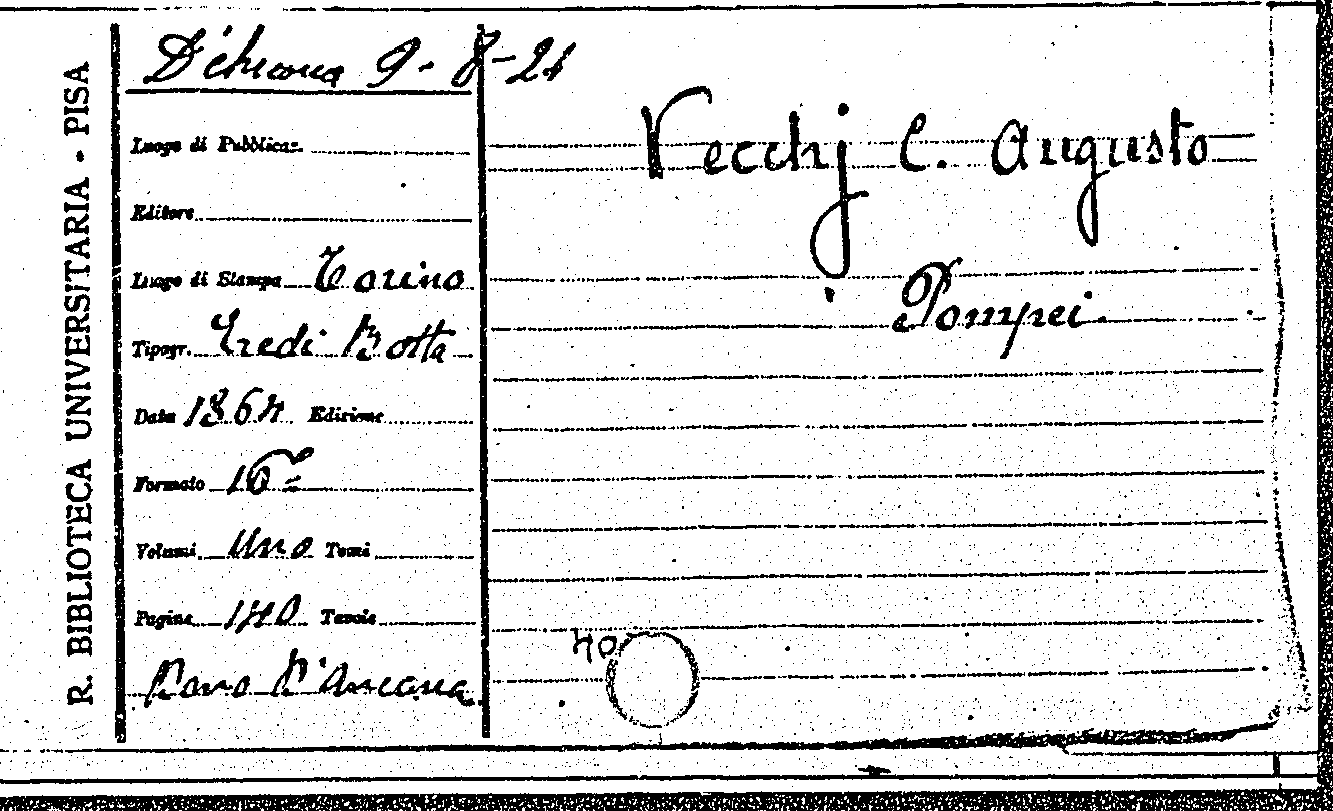 R. BIBLIOTECA UNIVERSITARIA - PISA
D'Ancona 9-8-21
Luogo di Pubblicaz.
Editore
Luogo di Stampa Torino
Tipogr. Eredi Botta
Data 1864 Edizione
Formato 16º
Volumi Uno Tomi
Pagine 140 Tavole
Dono D'Ancona
Vecchj C. Augusto
Pompei.
40